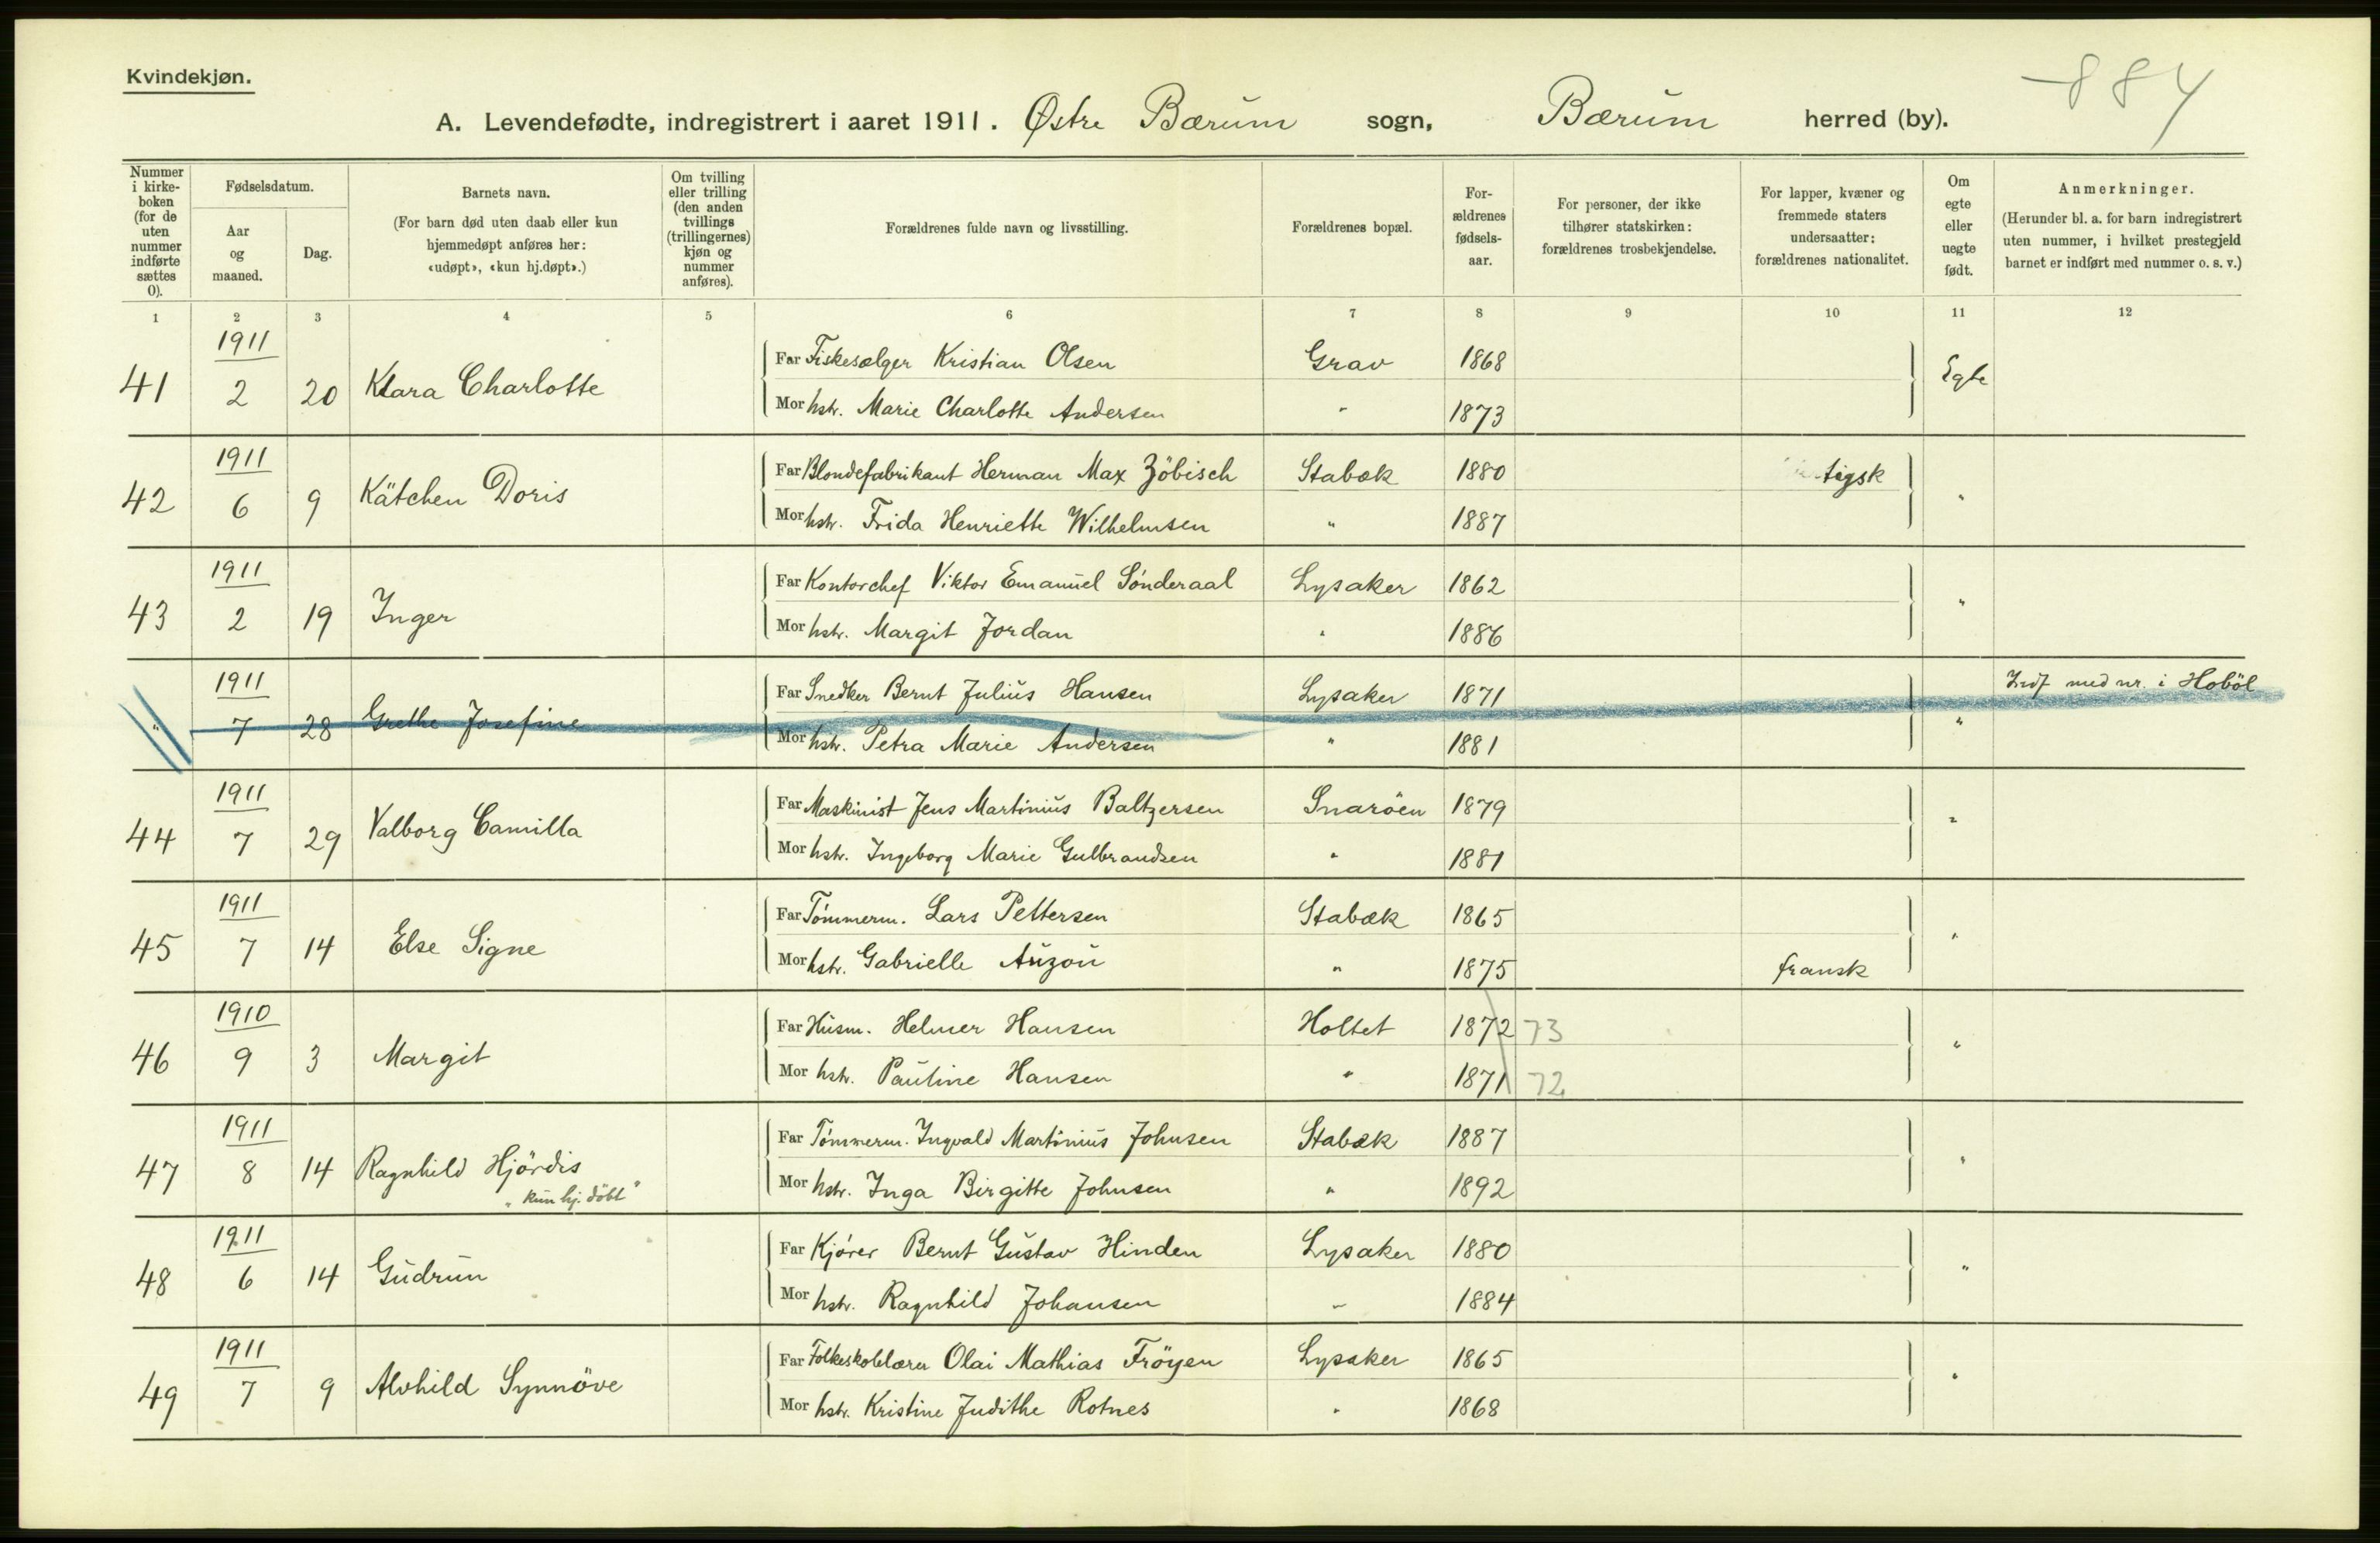 Kvindekjøn.
-884
A. Levendefødte, indregistrert i aaret 1911. Østre Bærum sogn, Bærum herred (by).
Nummer i kirke-boken (for de uten nummer indførte sættes 0).
Fødselsdatum.
Aar og maaned.
Dag.
Barnets navn.
(For barn død uten daab eller kun hjemmedøpt anføres her: «udøpt», «kun hj.døpt».)
Om tvilling eller trilling (den anden tvillings (trillingernes) kjøn og nummer anføres).
Forældrenes fulde navn og livsstilling.
Forældrenes bopæl.
For-ældrenes fødsels-aar.
For personer, der ikke tilhører statskirken: forældrenes trosbekjendelse.
For lapper, kvæner og fremmede staters undersaatter: forældrenes nationalitet.
Om egte eller uegte født.
Anmerkninger.
(Herunder bl. a. for barn indregistrert uten nummer, i hvilket prestegjeld barnet er indført med nummer o. s. v.)
1 2 3 4 5 6 7 8 9 10 11 12
41 1911 2 20 Klara Charlotte Far Fiskesælger Kristian Olsen Grav 1868 Egte
Mor hstr. Marie Charlotte Andersen " 1873
42 1911 6 9 Kätchen Doris Far Blondefabrikant Herman Max Zöbisch Stabæk 1880 tysk "
Mor hstr. Frida Henriette Wilhelmsen " 1887
43 1911 2 19 Inger Far Kontorchef Viktor Emanuel Sónderaal Lysaker 1862 "
Mor hstr. Margit Jordan " 1886
" 1911 7 28 Grethe Josefine Far Snedker Bernt Julius Hansen Lysaker 1871 " Indf med nr. i Hoböl
Mor hstr. Petra Marie Andersen " 1881
44 1911 7 29 Valborg Camilla Far Maskinist Jens Martinius Baltzersen Snaröen 1879 "
Mor hstr. Ingeborg Marie Gulbrandsen " 1881
45 1911 7 14 Else Signe Far Tómmerm. Lars Pettersen Stabæk 1865 "
Mor hstr. Gabrielle Auzou " 1875 fransk
46 1910 9 3 Margit Far Husm. Helmer Hansen Holtet 1872 73 "
Mor hstr. Pauline Hansen " 1871 72
47 1911 8 14 Ragnhild Hjördis "kun hj. döbt" Far Tómmerm. Ingvald Martinius Johnsen Stabæk 1887 "
Mor hstr. Inga Birgitte Johnsen " 1892
48 1911 6 14 Gudrun Far Kjórer Bernt Gustav Hinden Lysaker 1880 "
Mor hstr. Ragnhild Johansen " 1884
49 1911 7 9 Alvhild Synnöve Far Folkeskolelærer Olai Mathias Fröyen Lysaker 1865 "
Mor hstr. Kristine Judithe Rotnes " 1868